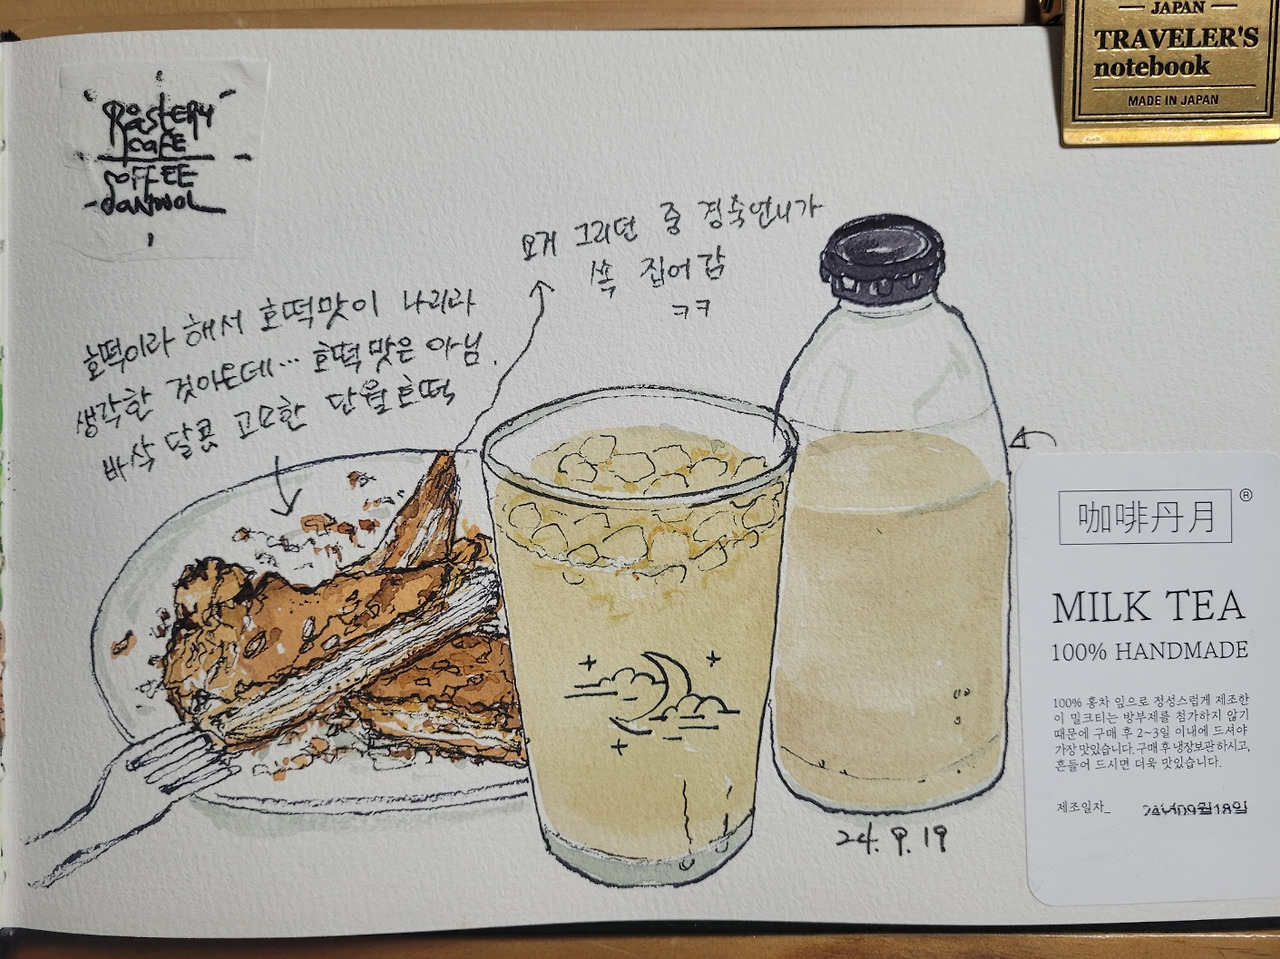 ROASTERY
CAFE
COFFEE
DANWOL
JAPAN
TRAVELER'S
notebook
MADE IN JAPAN
요거 그리던 중 경숙언니가
쏙 집어감
ㅋㅋ
호떡이라 해서 호떡맛이 나리라
생각한 것아온데... 호떡맛은 아님.
바삭 달콤 고소한 단월호떡
咖啡丹月®
MILK TEA
100% HANDMADE
100% 홍차 잎으로 정성스럽게 제조한
이 밀크티는 방부제를 첨가하지 않기
때문에 구매 후 2~3일 이내에 드셔야
가장 맛있습니다. 구매 후 냉장보관하시고,
흔들어 드시면 더욱 맛있습니다.
제조일자_ 24년09월18일
24. 9. 19